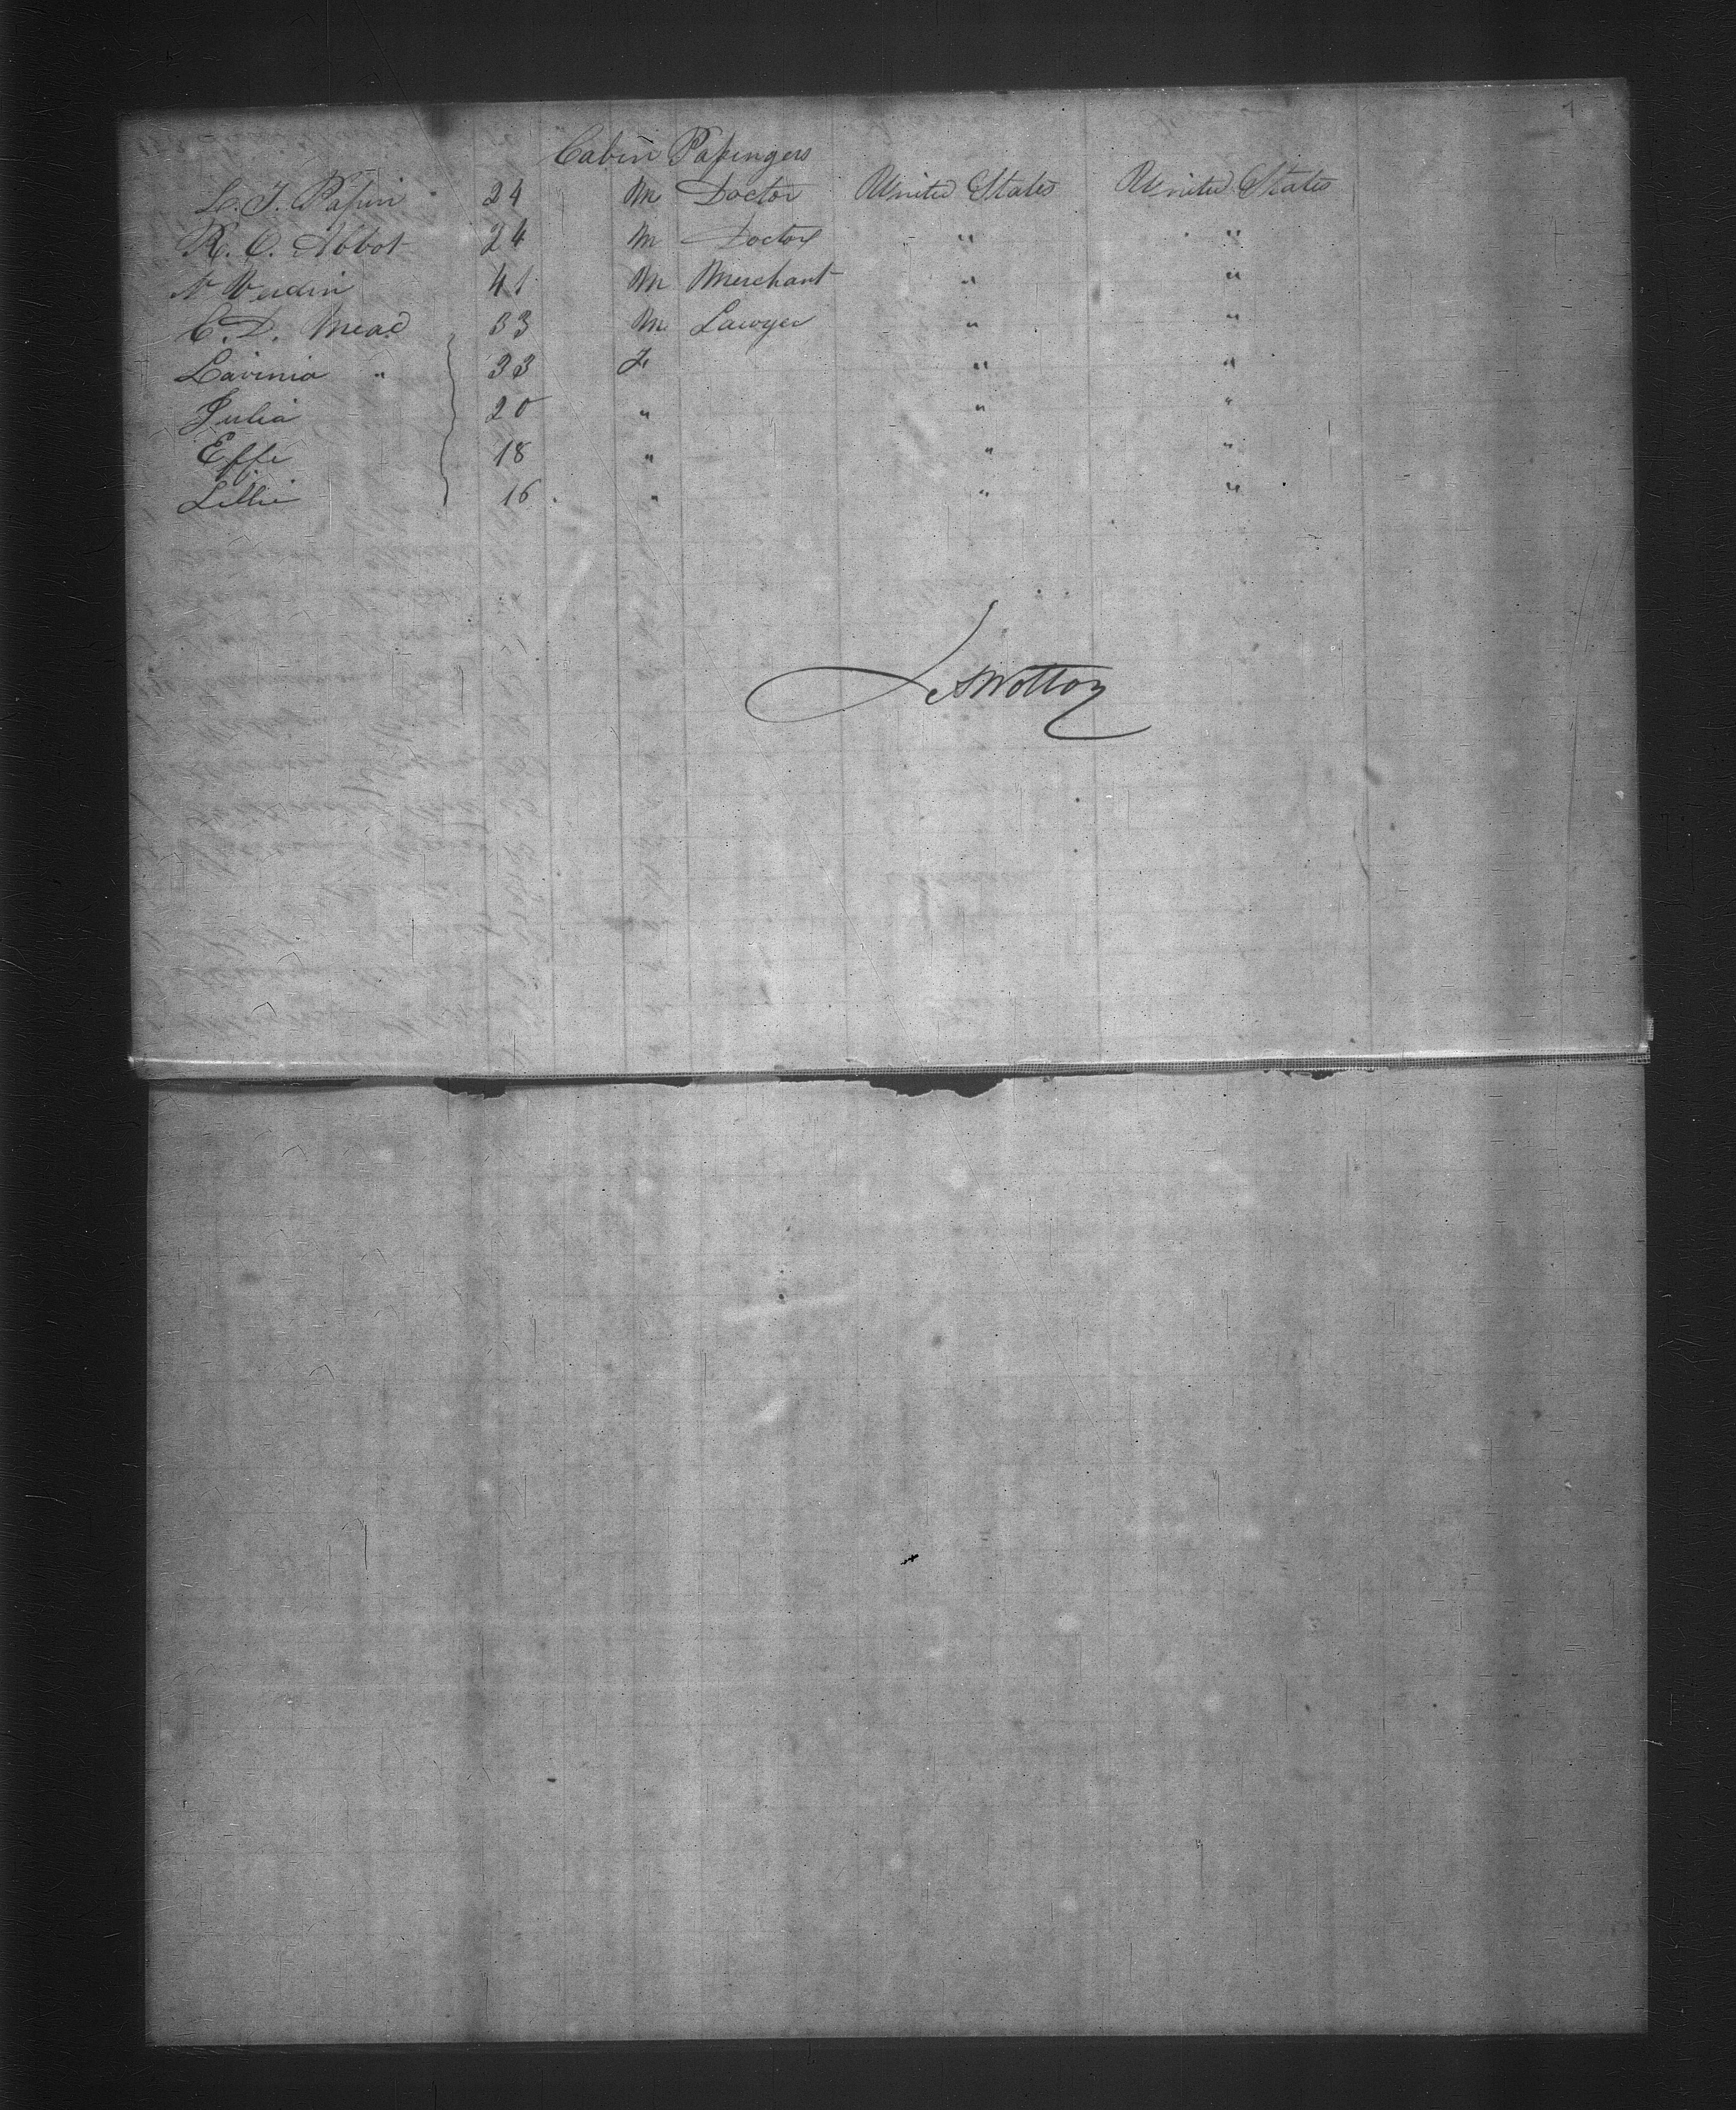 Cabin Passengers
L. T. Papin 24 M Doctor United States United States
R. C. Abbot 24 M Doctor " "
41 M Merchant " "
C. D. Mead 33 M Lawyer " "
Lavinia " 33 F " "
Julia 20 " " "
Effie 18 " " "
Lillie 16 " " "